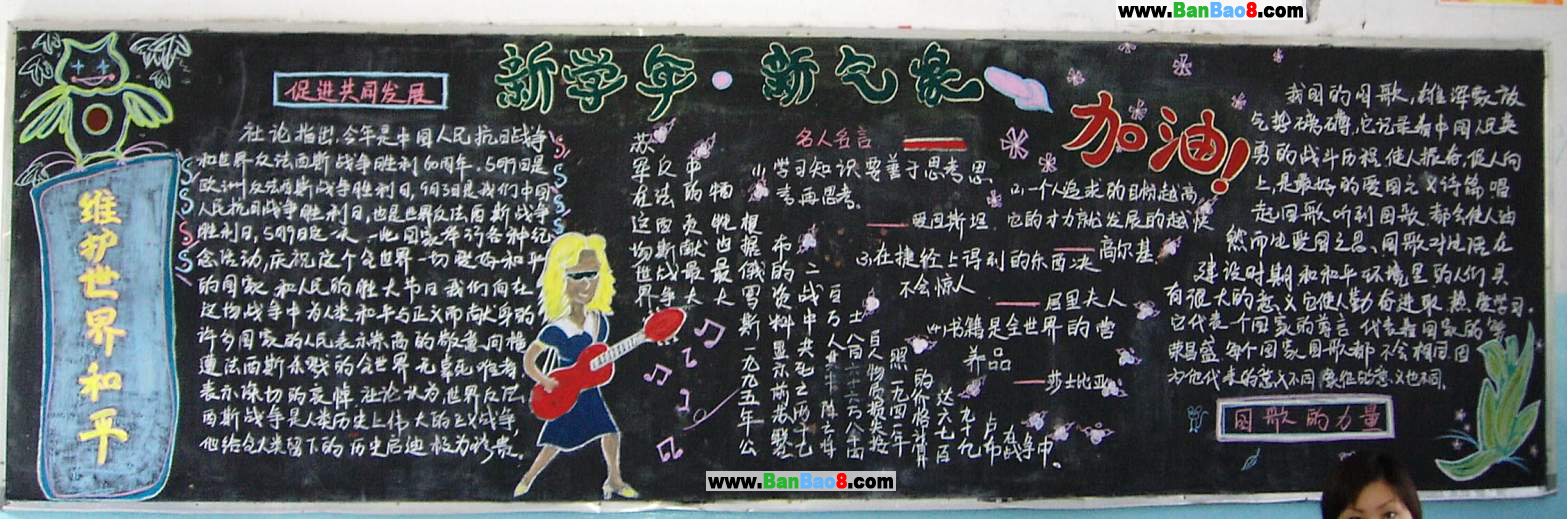 www.BanBao8.com
新学年·新气象
加油!
维护世界和平
促进共同发展
社论指出,今年是中国人民抗日战争
和世界反法西斯战争胜利60周年。5月9日是
欧洲反法西斯战争胜利日,9月3日是我们中国
人民抗日战争胜利日,也是世界反法西斯战争
胜利日,5月9日这一天,一些国家举行各种纪
念活动,庆祝这个全世界一切爱好和平
的国家和人民的胜大节日我们向在
这场战争中为人类和平与正义而献身的
许多国家的人民表示崇高的敬意,向横
遭法西斯杀戮的全世界无辜死难者
表示深切的哀悼社论认为,世界反法
西斯战争是人类历史上伟大的正义战争,
他给全人类留下的历史启迪极为珍贵。
苏军在这场世界
反法西斯战争
中的贡献最大
牺牲也最大
根据俄罗斯一九九五年公
布的资料显示前苏联
二战中共死亡两千七
名人名言
(1)学习知识要善于思考思
考再思考。
——爱因斯坦
(2)一个人追求的目标越高,
它的才力就发展的越快
——高尔基
(3)在捷径上得到的东西决
不会惊人
——居里夫人
(4)书籍是全世界的营
养品
——莎士比亚
我国的国歌,雄浑豪放
气势磅礴,它记录着中国人民英
勇的战斗历程,使人振奋,促人向
上,是最好的爱国主义诗篇唱
起国歌听到国歌都会使人油
然而生爱国之思,国歌对生活在
建设时期和和平环境里的人们具
有很大的意义它使人勤奋进取,热爱学习。
它代表一个国家的尊言代表着国家的繁
荣昌盛每个国家国歌都不会相同因
为他代表的意义不同象征的意义也不同。
国歌的力量
www.BanBao8.com